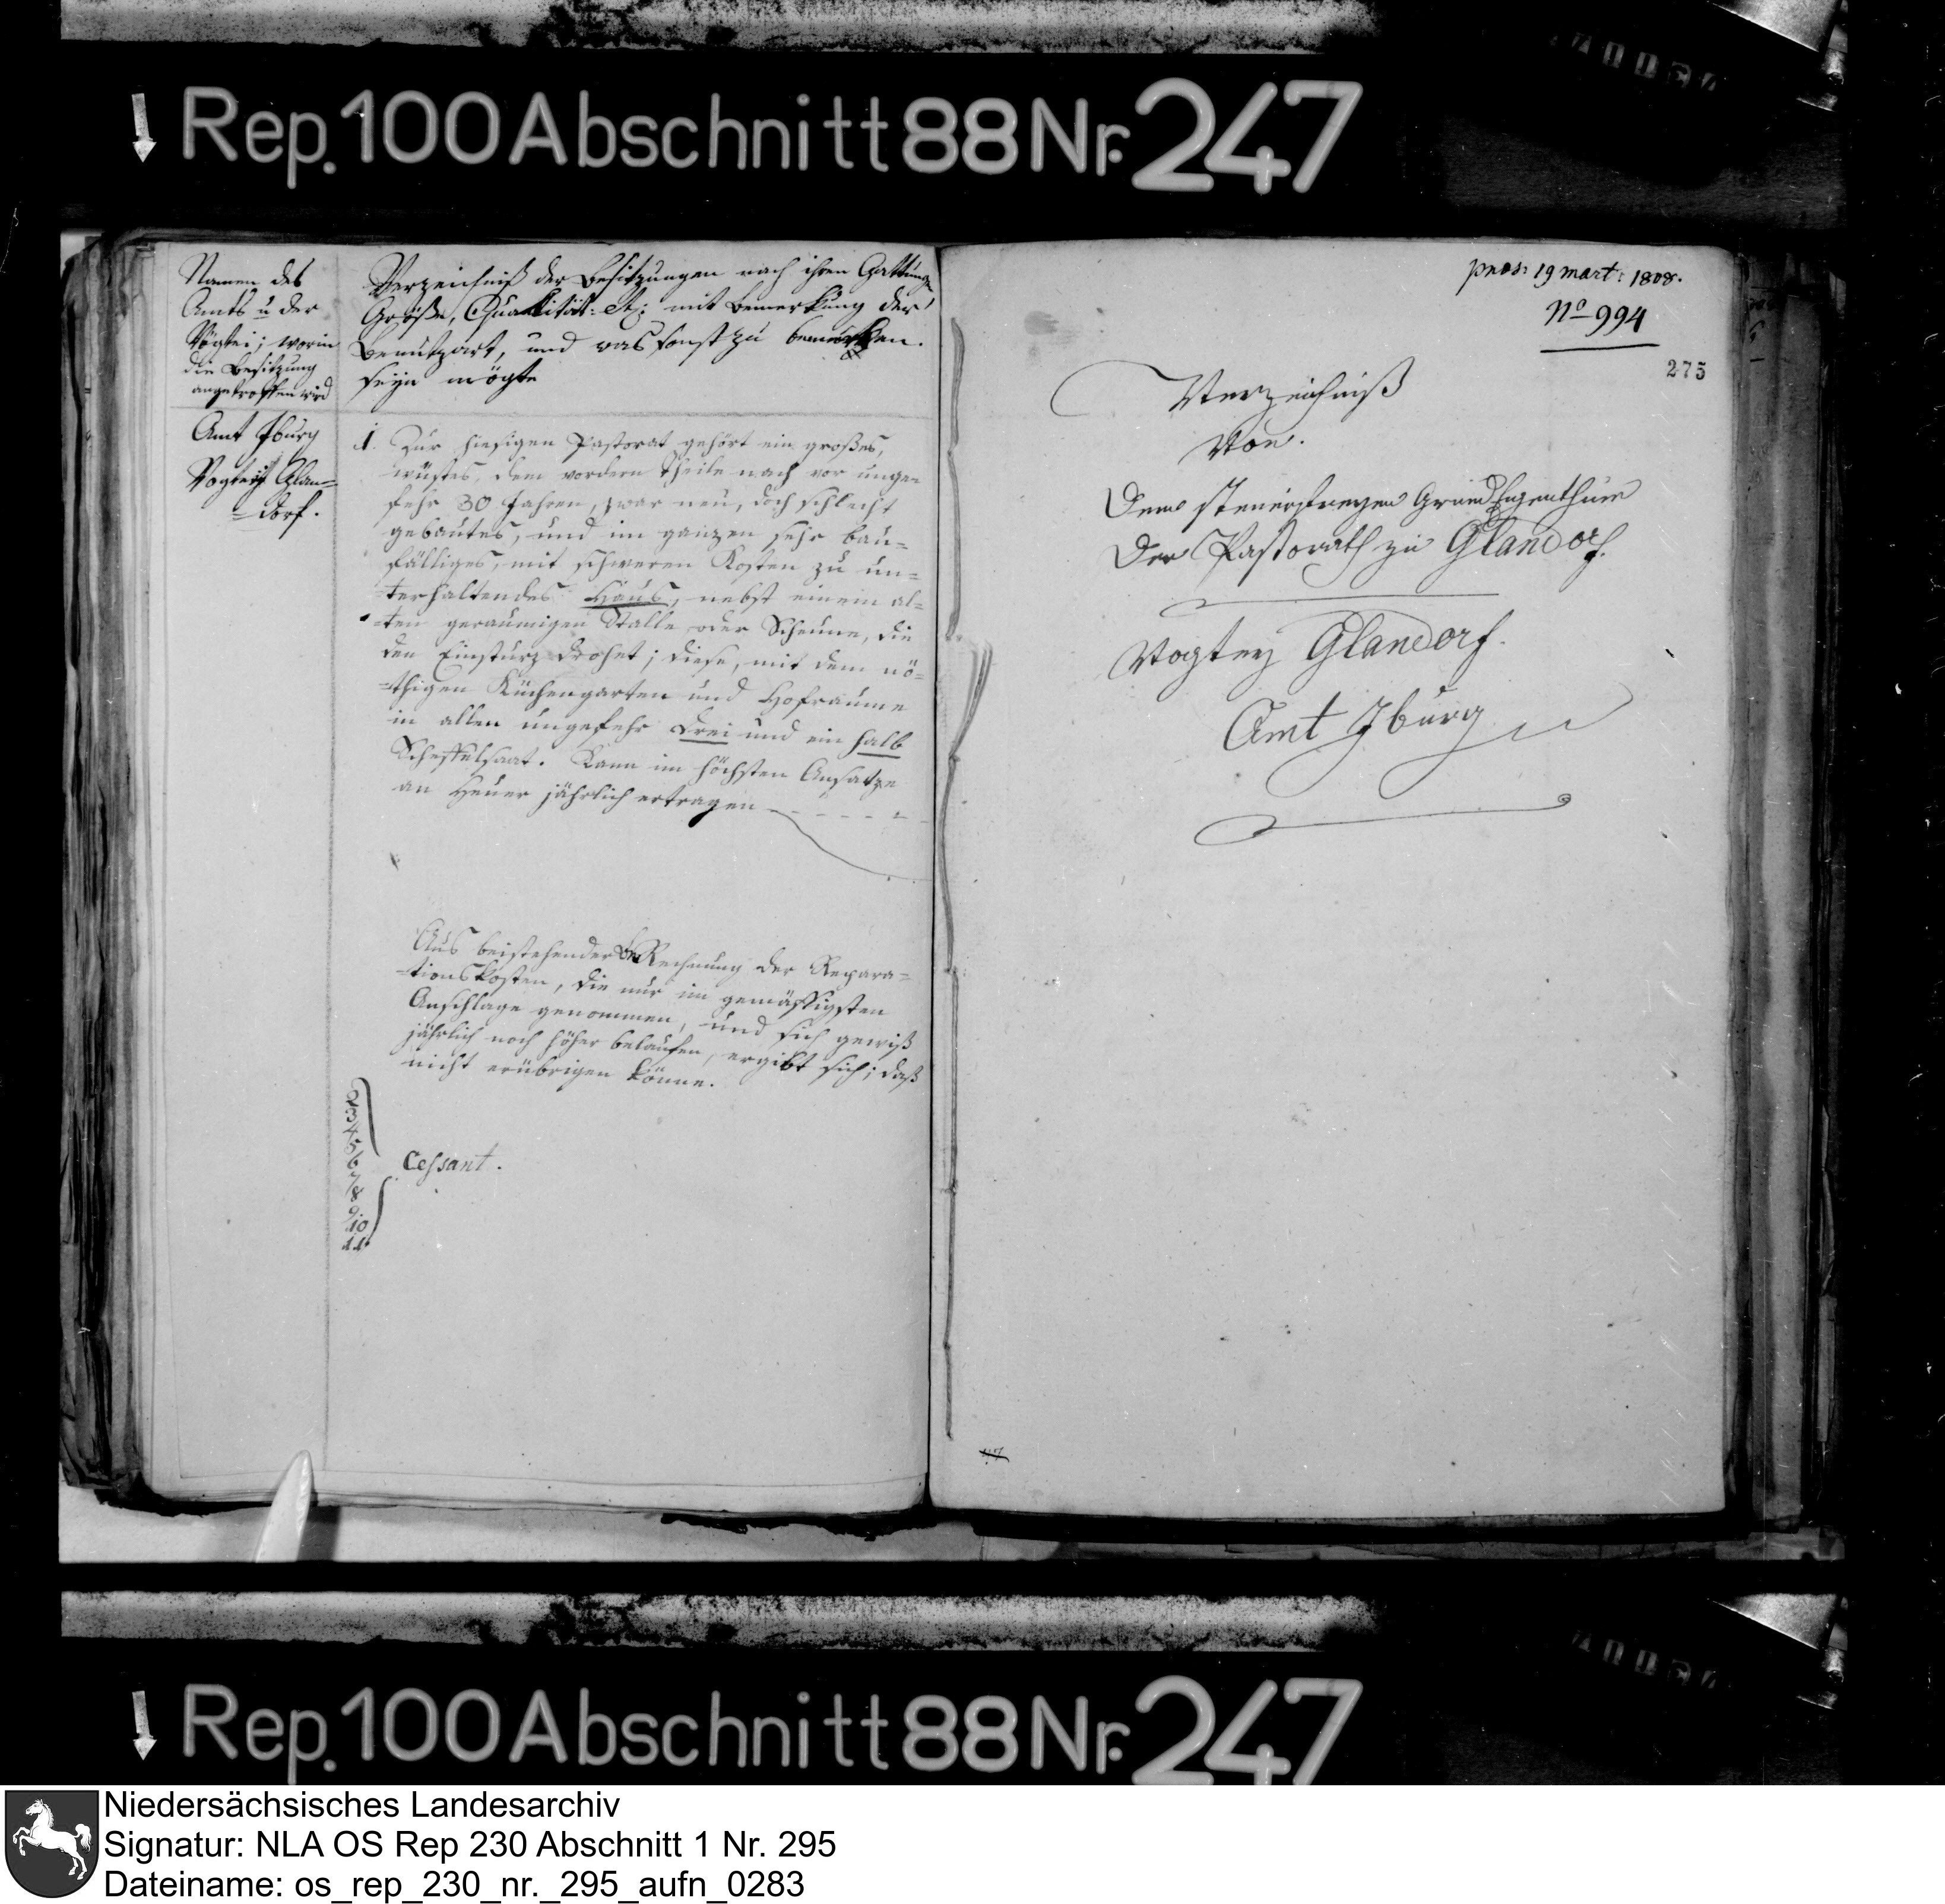 Rep. 100 Abschnitt 88 Nr. 247
Namen des
Amts u der
Vogtei; worin
die Besitzung
angetroffen wird
Verzeichniß der Besitzungen nach ihren Gattungen
Größe, Qualität: etc: mit Bemerkung der
Benutzart, und was sonst zu bemerken.
seyn mögte
Amt Iburg
Vogtey Glan=
=dorf.
1. Zur hiesigen Pastorat gehört ein großes,
wüstes, dem vordern Theile nach vor unge=
fehr 30 Jahren, zwar neu, doch schlecht
gebautes, und im ganzen sehr bau=
fälliges, mit schweren Kosten zu un=
=terhaltendes Haus, nebst einem al=
=ten geraumigen Stalle oder Scheune, die
den Einsturz drohet; diese, mit dem nö=
=thigen Küchengarten und Hofraume
in allen ungefehr drei und ein halb
Scheffelsaat. Kann im höchsten Ansatze
an Heuer jährlich ertragen
Aus beistehender Rechnung der Repara=
=tionskosten, die nur im gemässigsten
Anschlage genommen, und sich gewiß
jährlich noch höher belaufen, ergibt sich; daß
nicht erübrigen könne.
2
3
4
5
6
7
8
9
10
11
Cessant.
pnos: 19 mart: 1808.
No 994
275
Verzeichniß
Von.
Dem steuerfreyen Grund Eigenthum
Der Pastorath zu Glandorf.
Vogtey Glandorf.
Amt Iburg
Rep. 100 Abschnitt 88 Nr. 247
Niedersächsisches Landesarchiv
Signatur: NLA OS Rep 230 Abschnitt 1 Nr. 295
Dateiname: os_rep_230_nr._295_aufn_0283